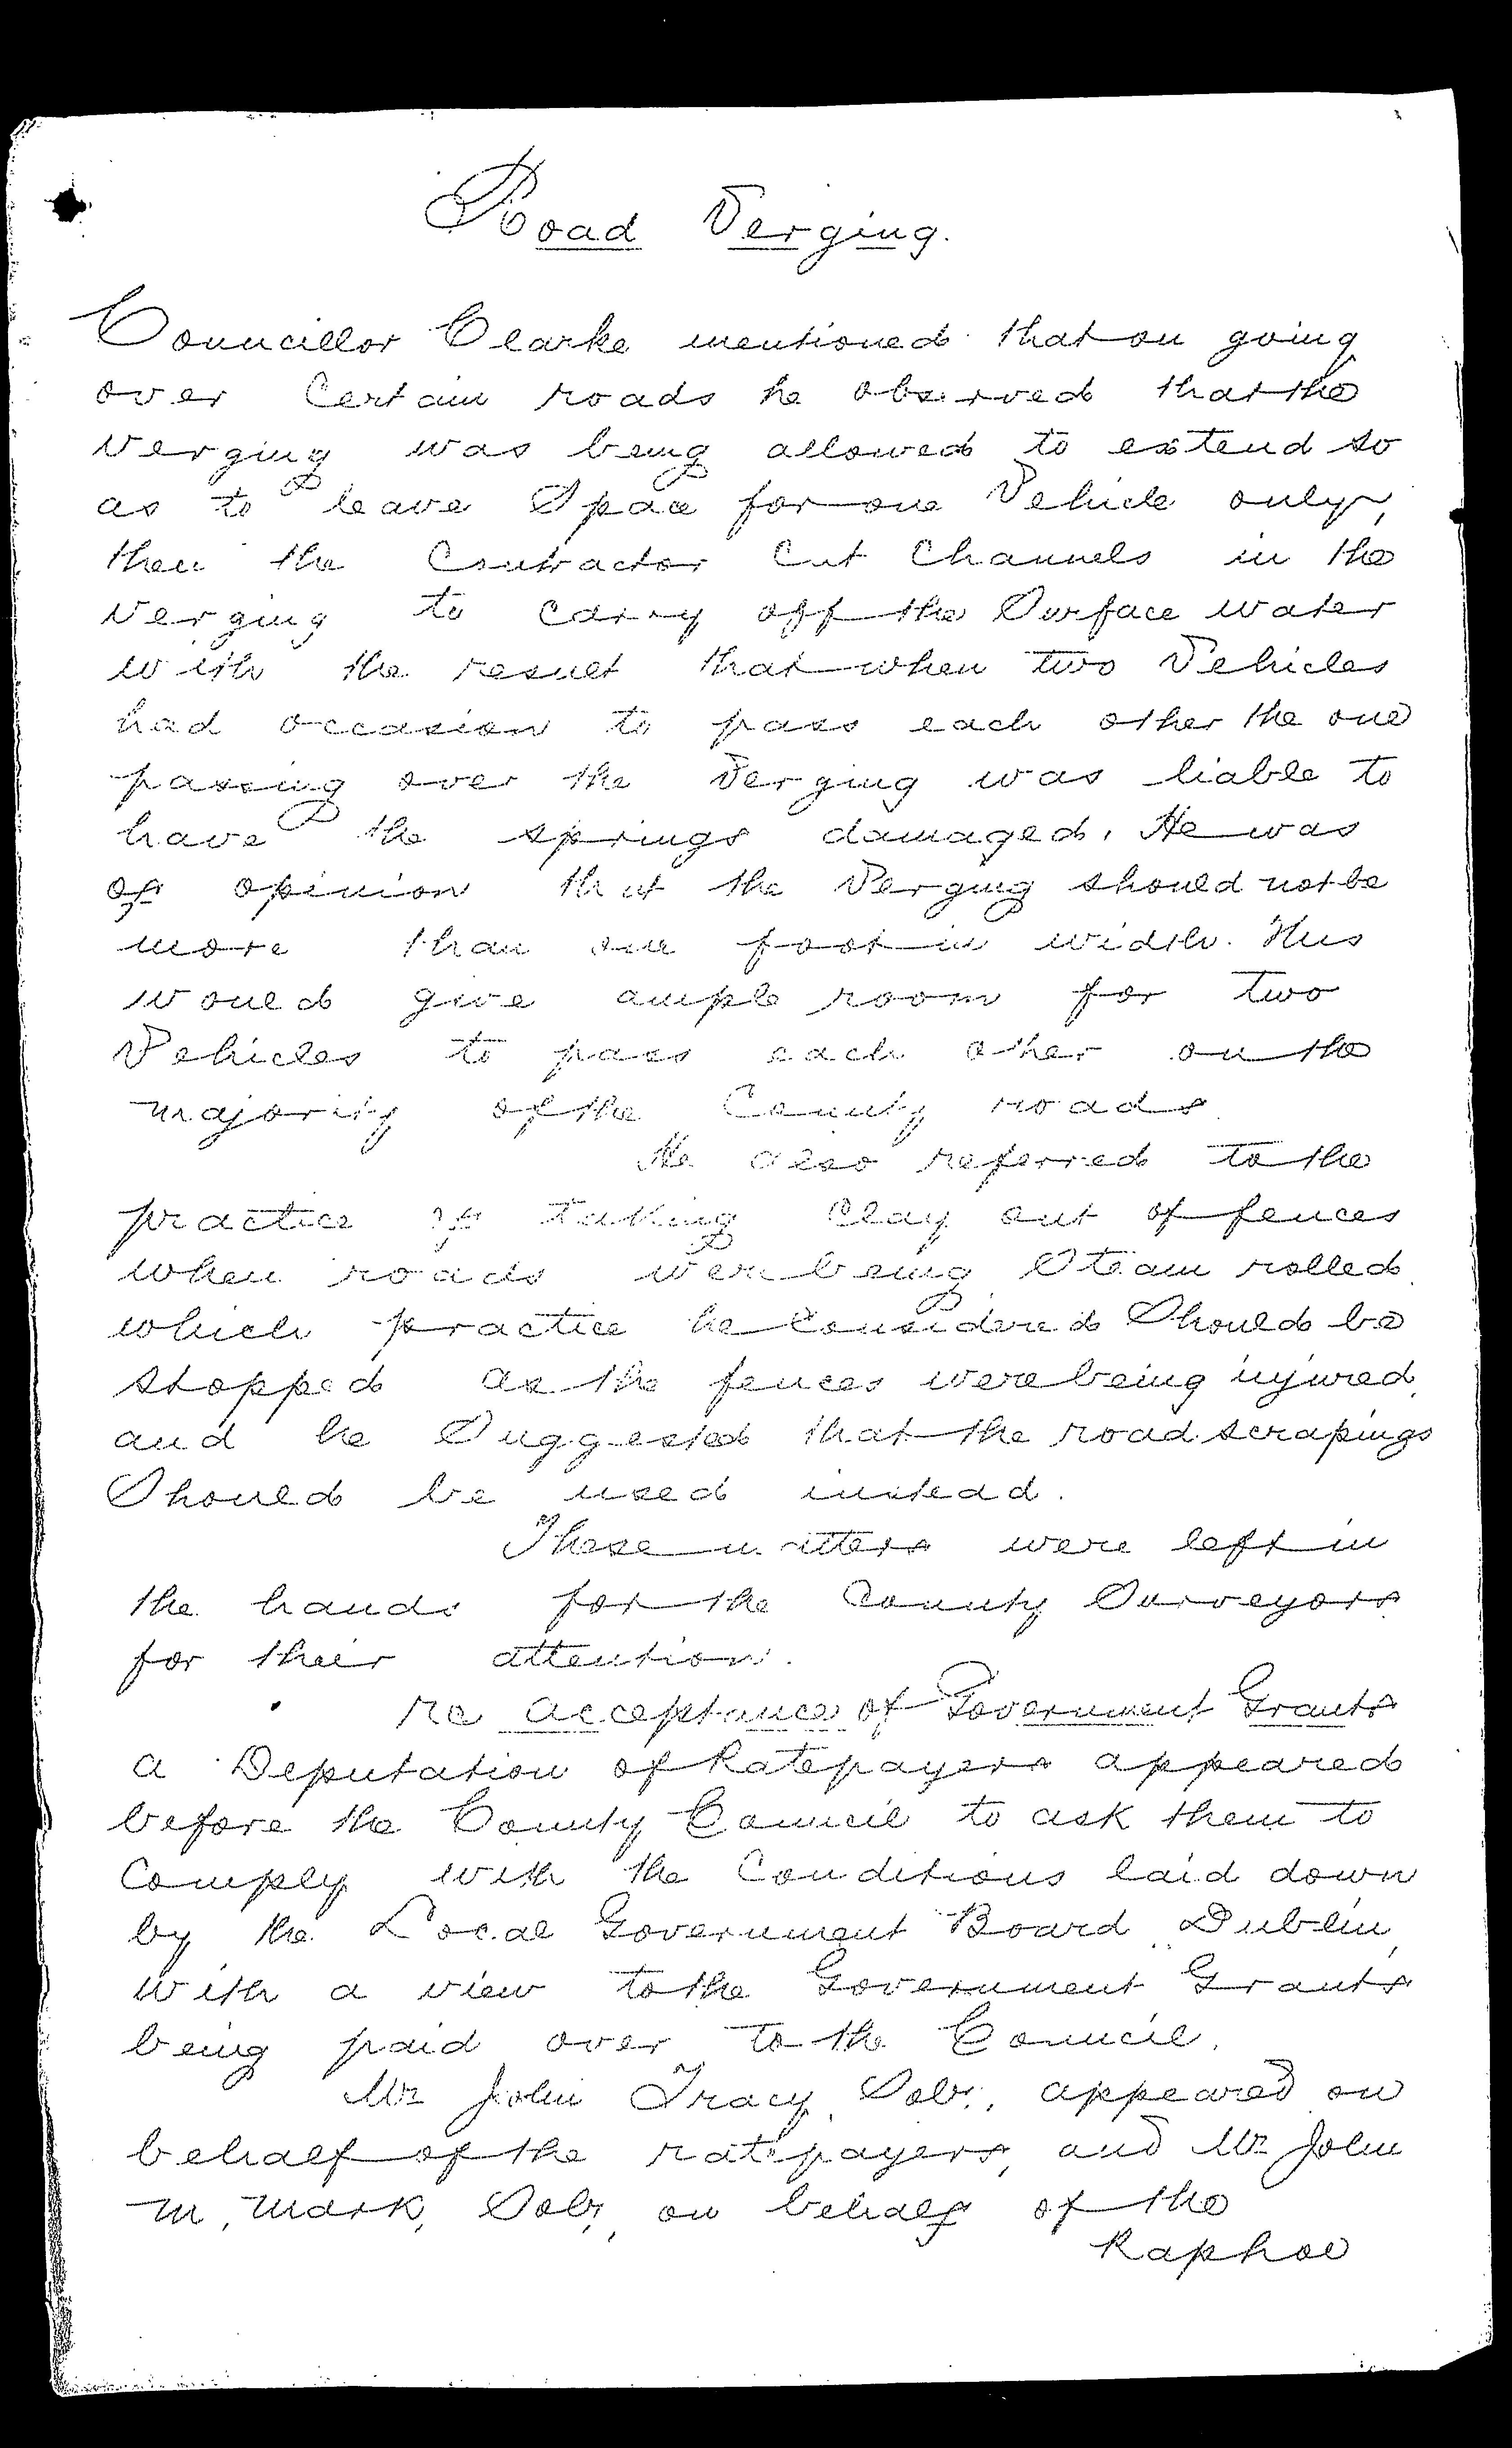 Road Verging.
Councillor Clarke mentioned that on going
over Certain roads he observed that the
verging was being allowed to extend so
as to leave Space for one Vehicle only,
then the Contractor Cut Channels in the
verging to carry off the Surface water
with the result that when two Vehicles
had occasion to pass each other the one
passing over the Verging was liable to
have the springs damaged. He was
of opinion that the Verging should not be
more than one foot in width. This
would give ample room for two
Vehicles to pass each other on the
majority of the County roads.
He also referred to the
practice of taking Clay out of fences
when roads were being Steam rolled
which practice he Considered Should be
stopped as the fences were being injured
and he Suggested that the road scrapings
Should be used instead.
These matters were left in
the hands for the County Surveyors
for their attention.
re acceptance of Government Grants
a Deputation of Ratepayers appeared
before the County Council to ask them to
Comply with the Conditions laid down
by the Local Government Board Dublin,
with a view to the Government Grants
being paid over to the Council.
Mr John Tracy, Solr., appeared on
behalf of the ratepayers, and Mr John
M, Mark, Solr, on behalf of the
Raphoe